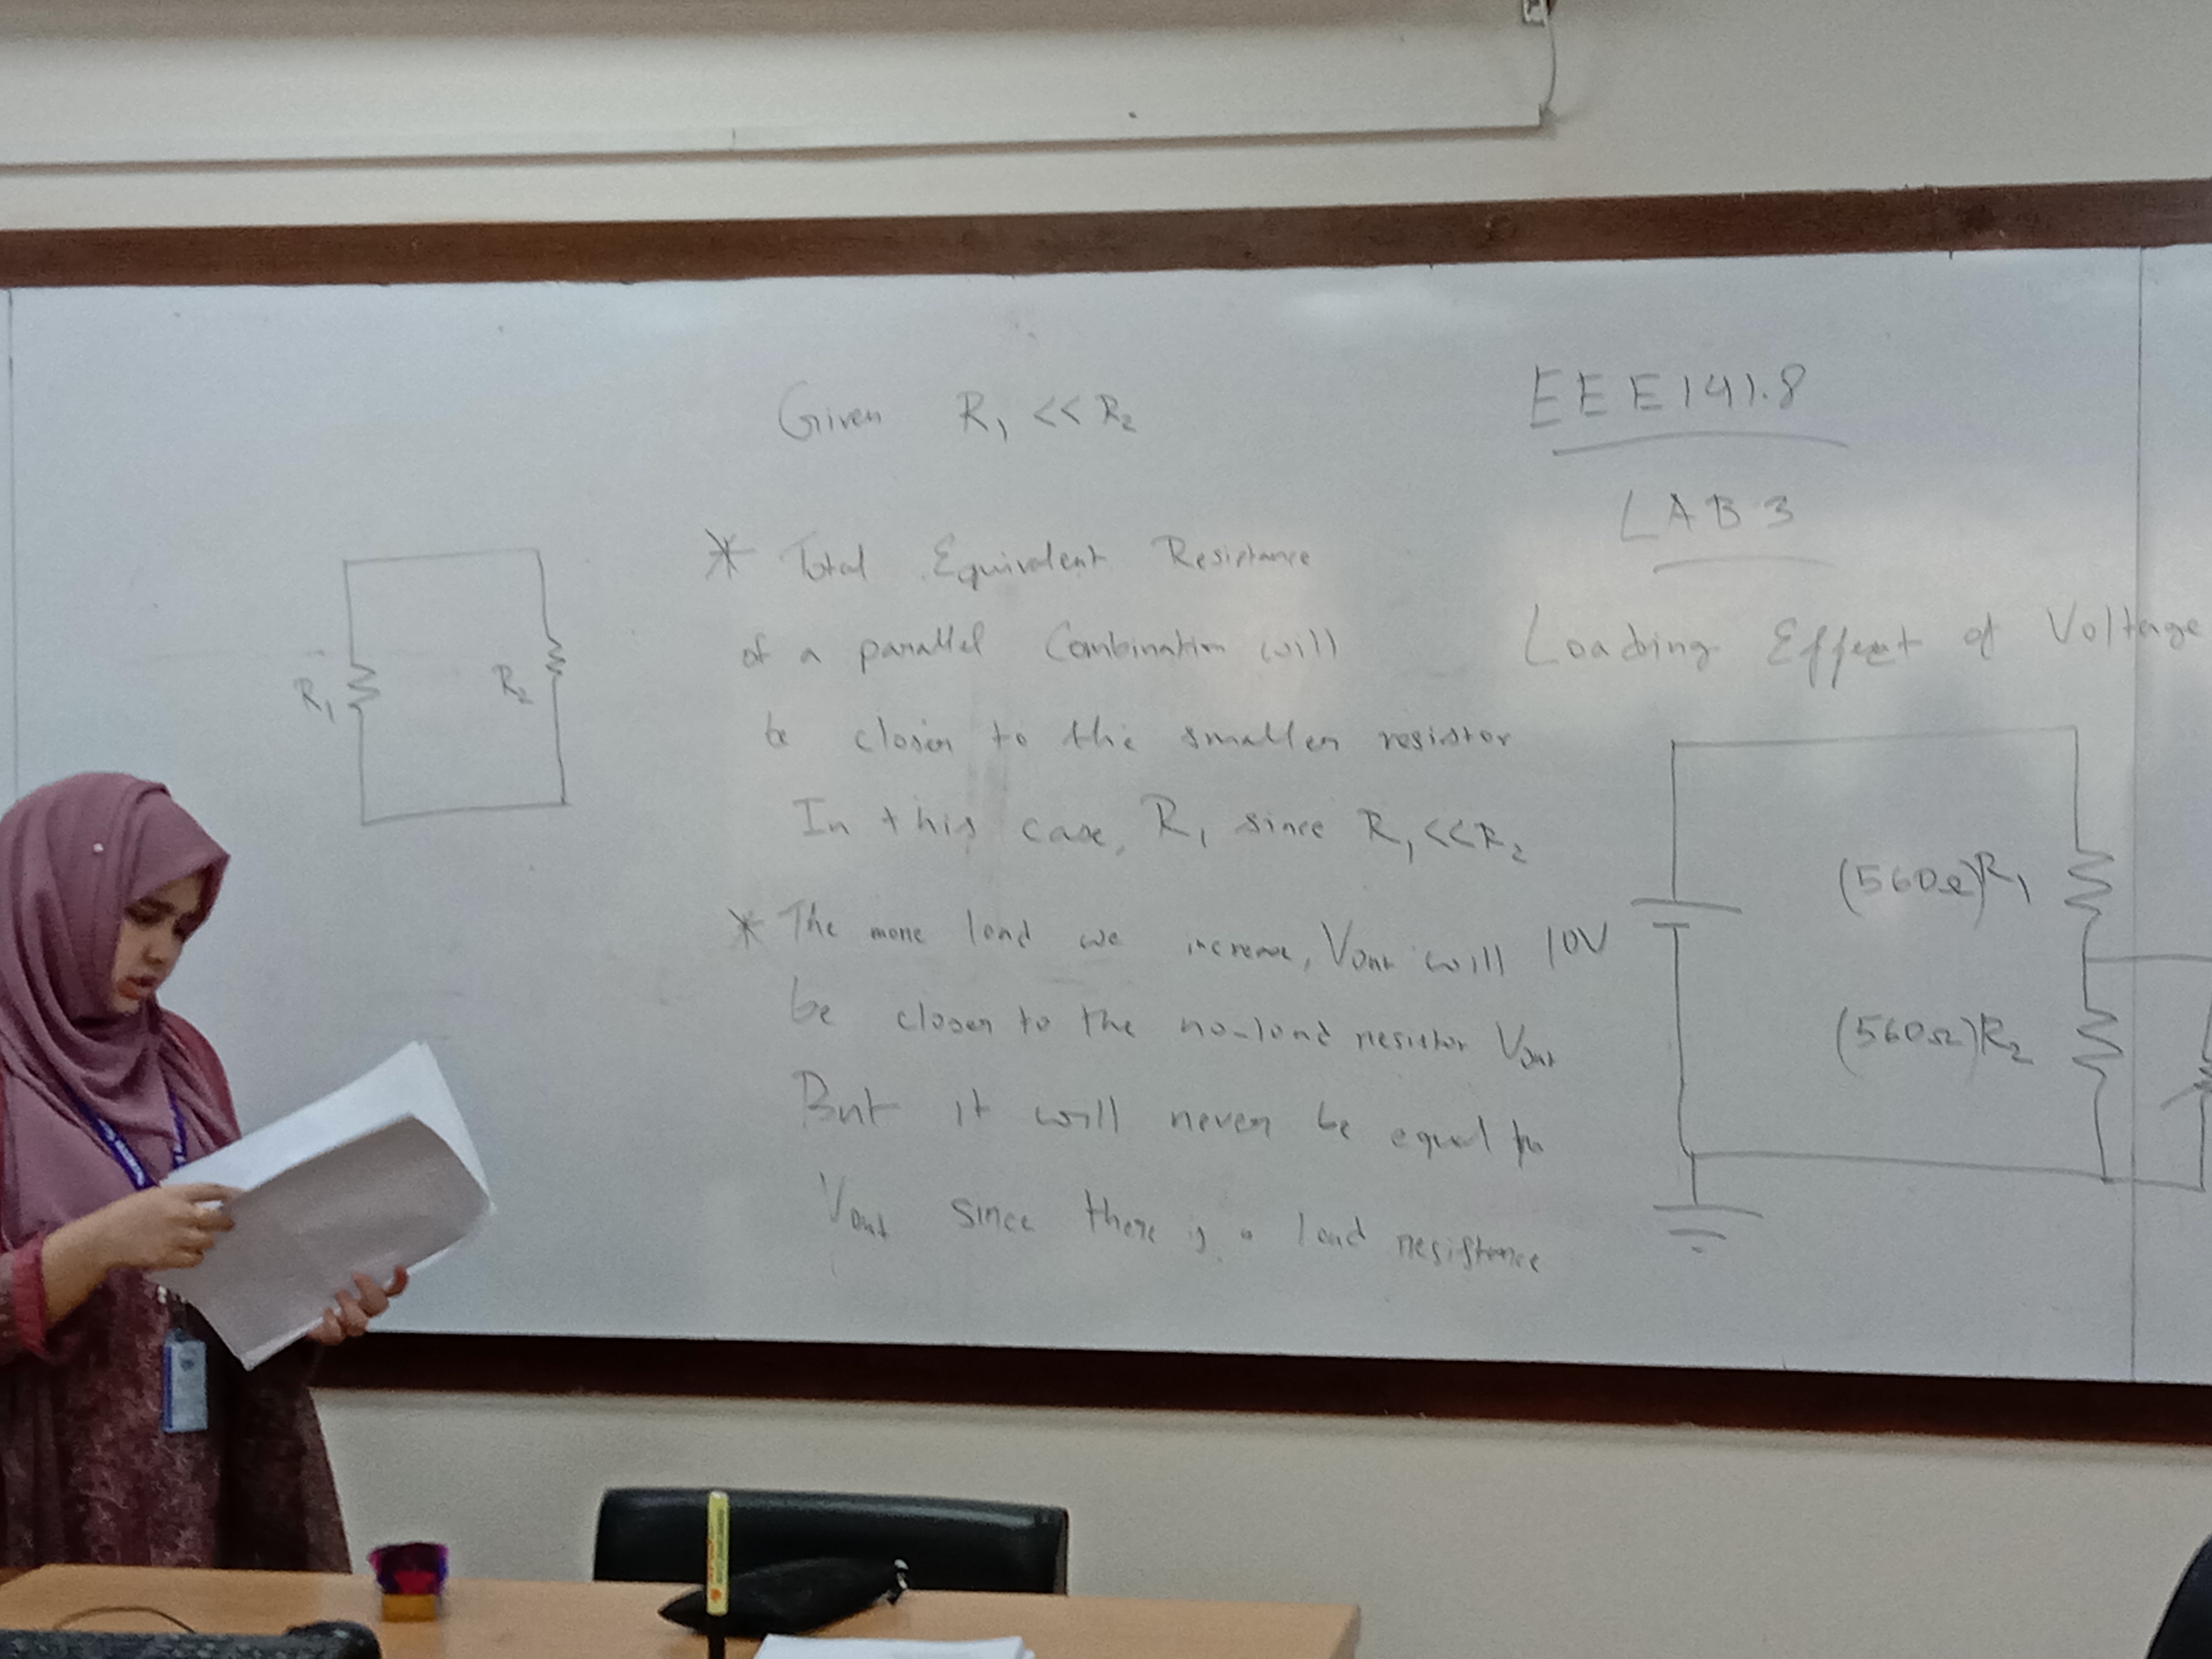 Given R₁ << R₂
* Total Equivalent Resistance
of a parallel Combination will
be closer to the smaller resistor
In this case, R₁ since R₁ << R₂
* The more load we increase, Vout will
be closer to the no-load resistor Vout
But it will never be equal to
Vout since there is a load resistance
R₁
R₂
EEE141.8
LAB 3
Loading Effect of Voltage
10V
(560Ω)R₁
(560Ω)R₂